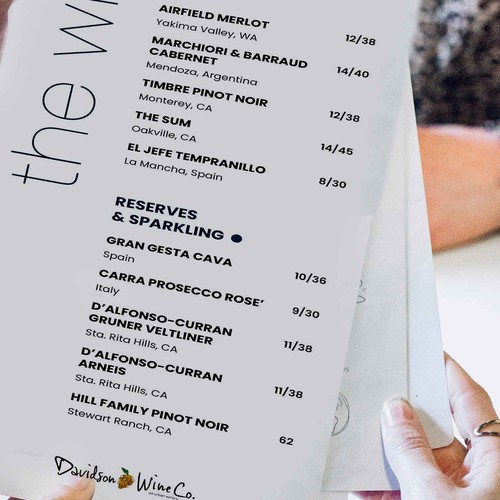 the
AIRFIELD MERLOT
Yakima Valley, WA 12/38
MARCHIORI & BARRAUD
CABERNET 14/40
Mendoza, Argentina
TIMBRE PINOT NOIR
Monterey, CA 12/38
THE SUM
Oakville, CA 14/45
EL JEFE TEMPRANILLO
La Mancha, Spain 8/30
RESERVES
& SPARKLING
GRAN GESTA CAVA
Spain 10/36
CARRA PROSECCO ROSE'
Italy 9/30
D'ALFONSO-CURRAN
GRUNER VELTLINER 11/38
Sta. Rita Hills, CA
D'ALFONSO-CURRAN
ARNEIS 11/38
Sta. Rita Hills, CA
HILL FAMILY PINOT NOIR
Stewart Ranch, CA 62
Davidson Wine Co.